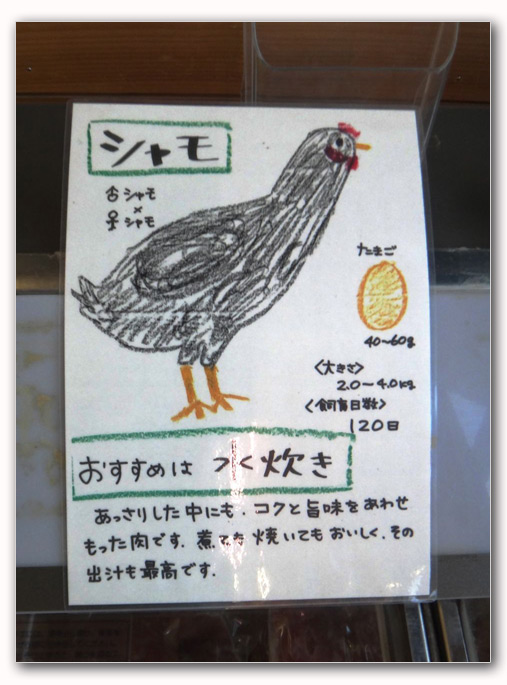 シャモ
♂シャモ
×
♀シャモ
たまご
40~60g
<大きさ>
2.0~4.0kg
<飼育日数>
120日
おすすめは つく炊き
あっさりした中にも、コクと旨味をあわせ
もった肉です。煮ても焼いてもおいしく、その
出汁も最高です。